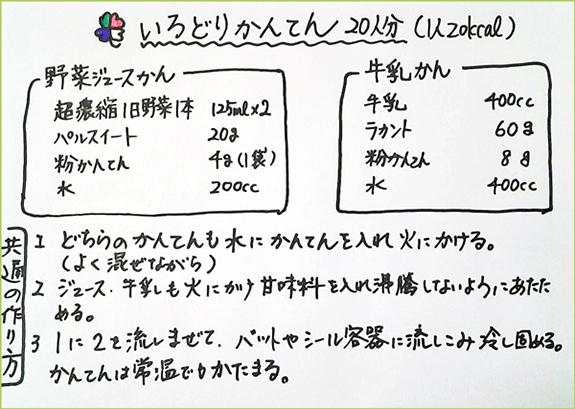 いろどりかんてん 20人分 (1人20kcal)
野菜ジュースかん
超濃縮1日野菜1本 125ml×2
パルスイート 20g
粉かんてん 4g(1袋)
水 200cc
牛乳かん
牛乳 400cc
ラカント 60g
粉かんてん 8g
水 400cc
共通の作り方
1 どちらのかんてんも水にかんてんを入れ火にかける。
(よく混ぜながら)
2 ジュース・牛乳も火にかけ甘味料を入れ沸騰しないようにあたた
める。
3 1に2を流しまぜて、バットやシール容器に流しこみ冷し固める。
かんてんは常温でもかたまる。